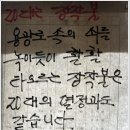 20대는 장작불
용광로 속의 쇠를
녹이듯이 활활
타오르는 장작불은
20대의 열정과도
같습니다